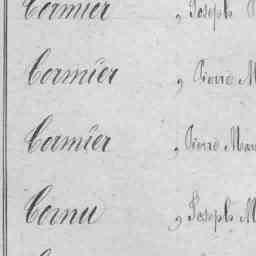 Cormier, Joseph
Cormier, Pierre M
Cormier, Pierre Mar
Cornu, Joseph M